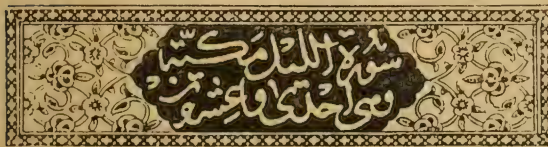 سُورَةُ اللَّيْلِ مَكِّيَّة
وهي احدى وعشرون